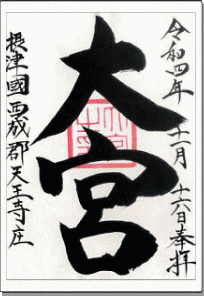 令和四年十一月十六日奉拝
大宮
摂津國西成郡天王寺庄